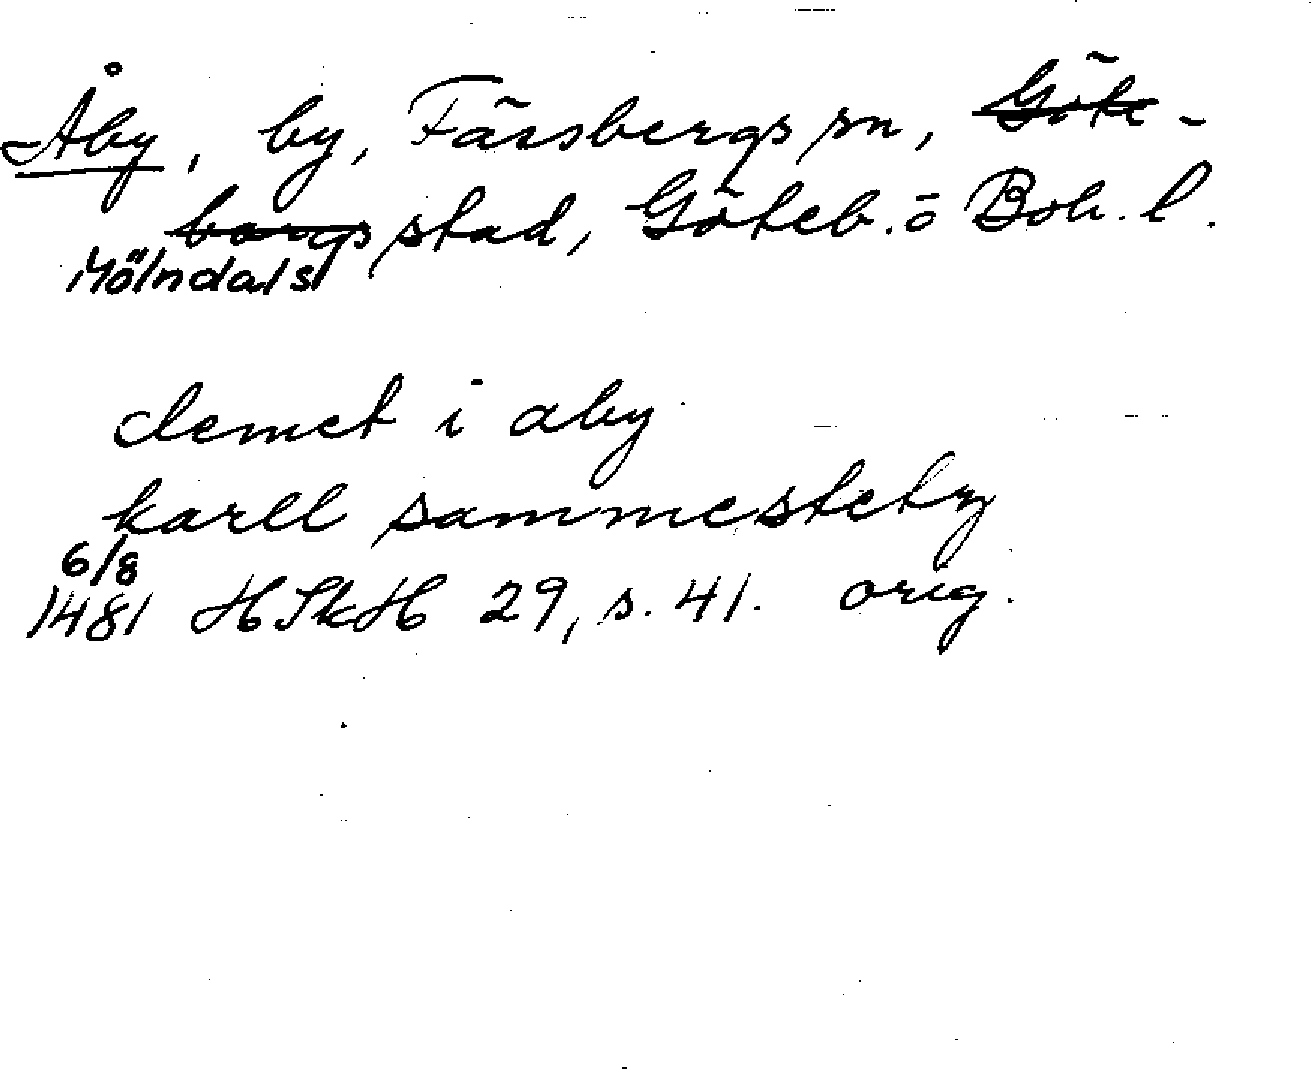 Åby, by, Fässbergs sn, Göte-
borgs stad, Göteb. o Boh. l.
Mölndals
clemet i aby
karll sammestety
6/8
1481 HSkH 29, s. 41. orig.